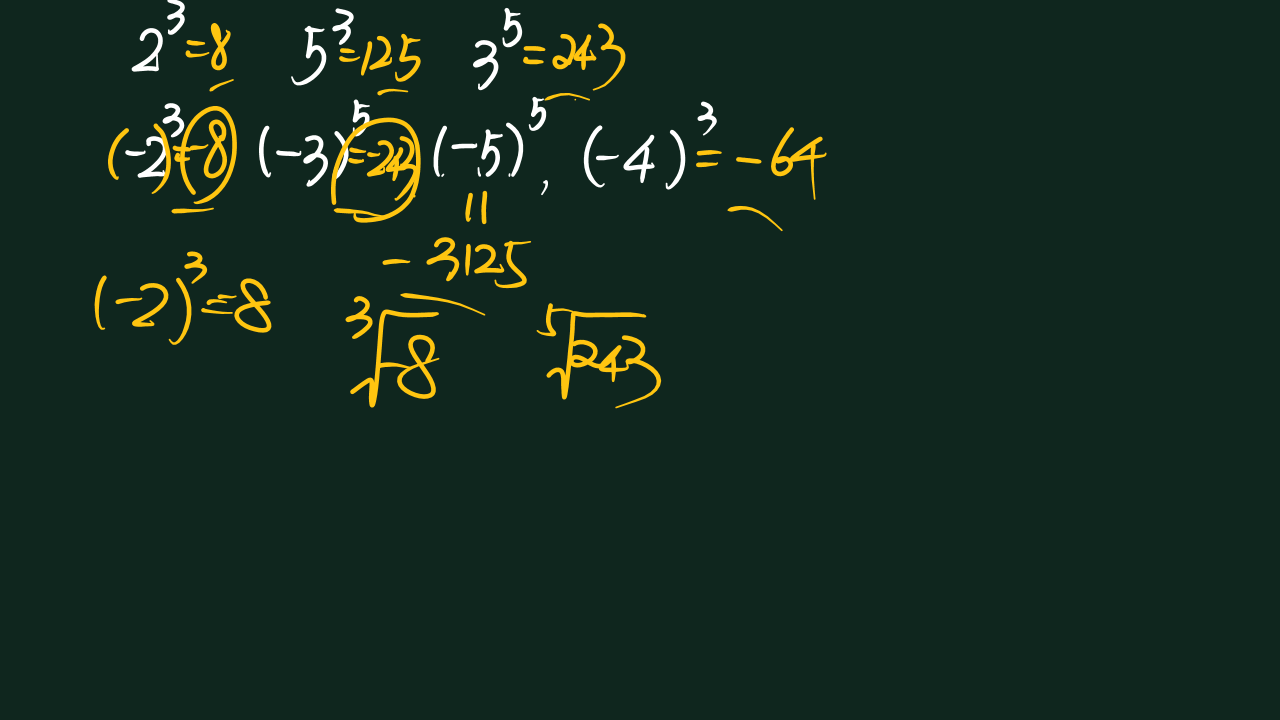 2³=8 5³=125 3⁵=243
(-2)³=-8 (-3)⁵=-243 (-5)⁵, (-4)³=-64
=
-3125
(-2)³=-8 ³√-8 ⁵√-243